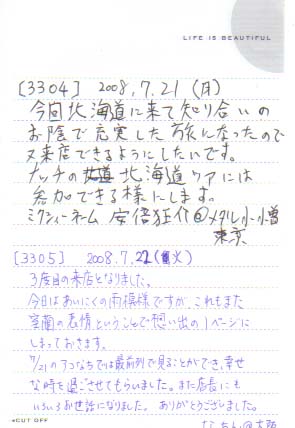 LIFE IS BEAUTIFUL
[3304] 2008,7,21 (月)
今回北海道に来て知り合いの
お陰で充実した旅になったので
又来店できるようにしたいです。
ナッチの北海道ツアには
参加できる様にします。
ミクシィーネーム 安倍狂介@メタル小僧
東京
[3305] 2008.7.22(火)
3度目の来店となりました。
今日はあいにくの雨模様ですが、これもまた
室蘭の表情ということで想い出の1ページに
しまっておきます。
7/21のアコなちでは最前列で見ることができ、幸せ
な時を過ごさせてもらいました。また店長にも
いろいろお世話になりました。ありがとうございました。
@大阪
◂CUT OFF